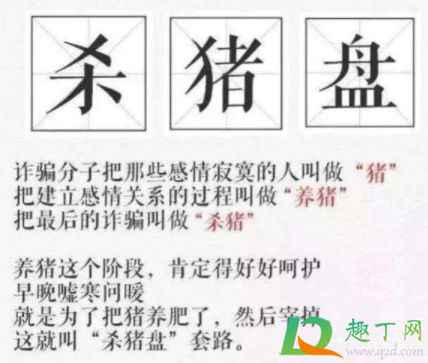 杀猪盘
诈骗分子把那些感情寂寞的人叫做“猪”
把建立感情关系的过程叫做“养猪”
把最后的诈骗叫做“杀猪”
养猪这个阶段，肯定得好好呵护
早晚嘘寒问暖
就是为了把猪养肥了，然后宰掉
这就叫“杀猪盘”套路。
趣丁网
www.qzd.com